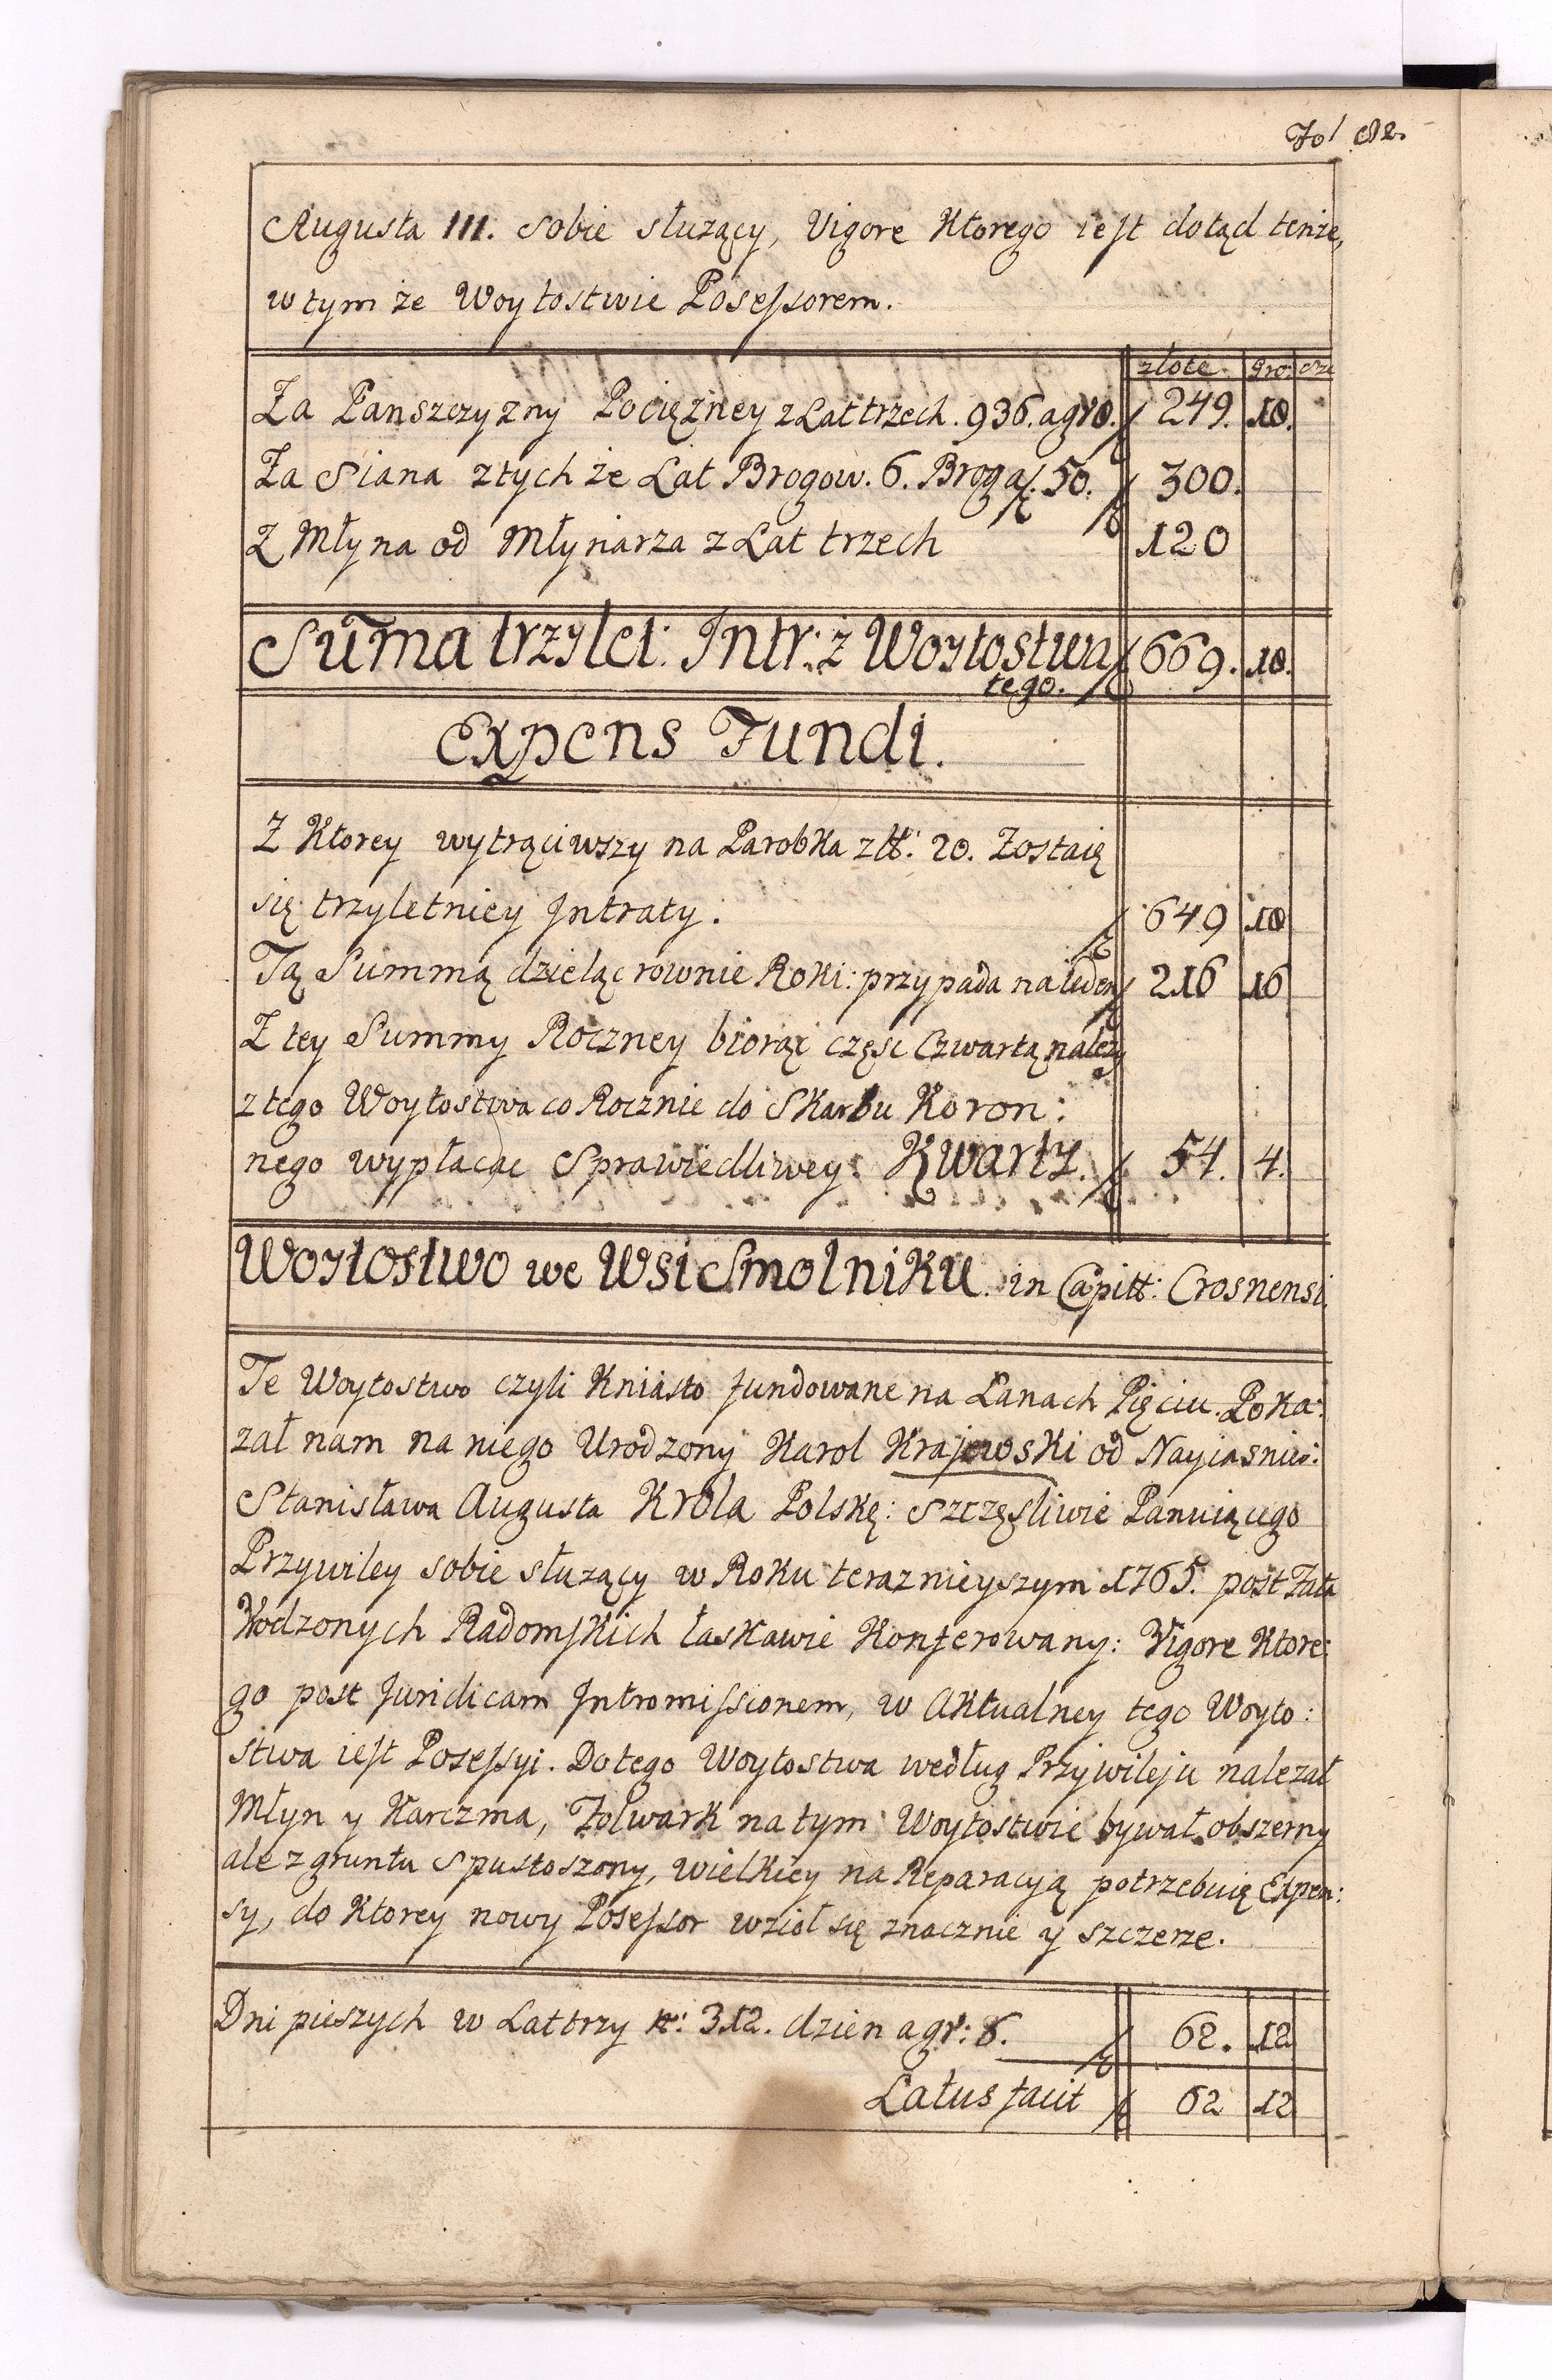 Fol 82.
Augusta III. sobie służący, Vigore Ktorego iest dotąd tenże,
w tym że Woytostwie Possessorem.
złote gro: sze
Za Panszczyzny Pociężney z Lat trzech. 936. a gro. 249. 18.
Za Siana z tych że Lat Brogow. 6. Brog a f. 50. 300.
Z Młyna od Młynarza z Lat trzech 120
Suma trzylet: Intr: z Woytostwa 669. 18.
tego.
Expens Fundi.
Z Ktorey wytrąciwszy na Parobka złł: 20. Zostaię
się trzyletniey Intraty: 649 18
Tą Summą dzieląc rownie Roki: przypada na ieden 216 16
Z tey Summy Roczney biorąc częsc Czwartą należy
z tego Woytostwa co Rocznie do Skarbu Koron:
nego wypłacac Sprawiedliwey: Kwarty. 54. 4.
Woytostwo we Wsi Smolniku. in Capitt: Crosnensi.
Te Woytostwo czyli Kniasto fundowane na Łanach Pięciu. Poka:
zał nam na niego Urodzony Karol Krajewski od Nayiasnie:
Stanisława Augusta Krola Polskę: szczęsliwie Panuiącego
Przywiley sobie służący w Roku terazniejszym 1765. post Fata
Rodzonych Radomskich łaskawie Konferowany: Vigore Ktore:
go post Juridicam Intromissionem, w Aktualney tego Woyto:
stwa iest Possessyi. Do tego Woytostwa według Przywileju należał
Młyn y Karczma, Folwark na tym Woytostwie bywał obszerny
ale z gruntu spustoszony, wielkiey na Reparacyą potrzebuię Expen:
sy, do Ktorey nowy Possessor wziol się znacznie y szczerze.
Dni pieszych w Lat trzy n: 312. dzien a gr: 6. 62. 12
Latus facit 62 12